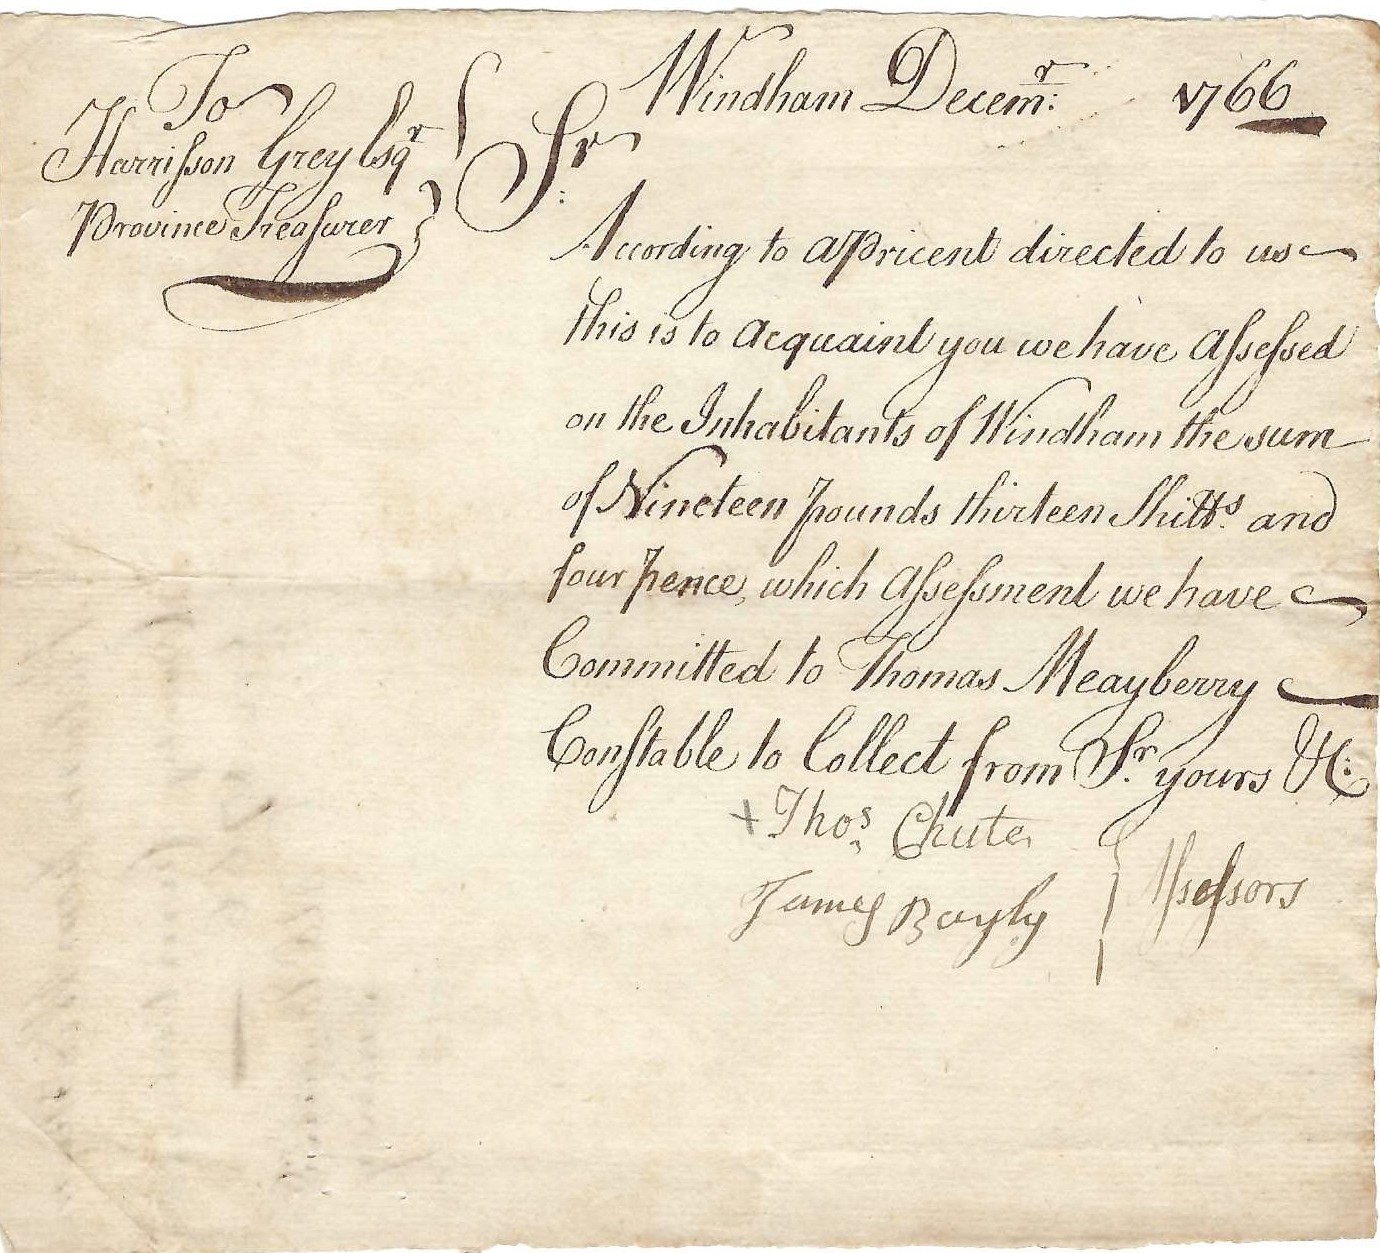 Windham Decemr: 1766
To
Harrisson Grey Esqr
Province Treasurer
Sr:
According to a Pricent directed to us
this is to acquaint you we have Assessed
on the Inhabitants of Windham the sum
of Nineteen pounds thirteen Shills. and
four pence, which Assessment we have
Committed to Thomas Meayberry
Constable to Collect from Sr. yours &c:
+ Thos. Chute
James Bayly
Assessors